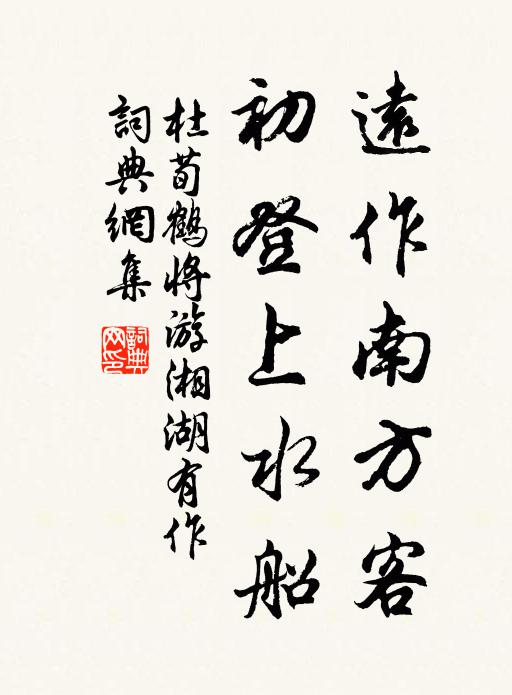 遠作南方客
初登上水船
杜荀鶴將游湘湖有作
詞典網集
詞典
网印